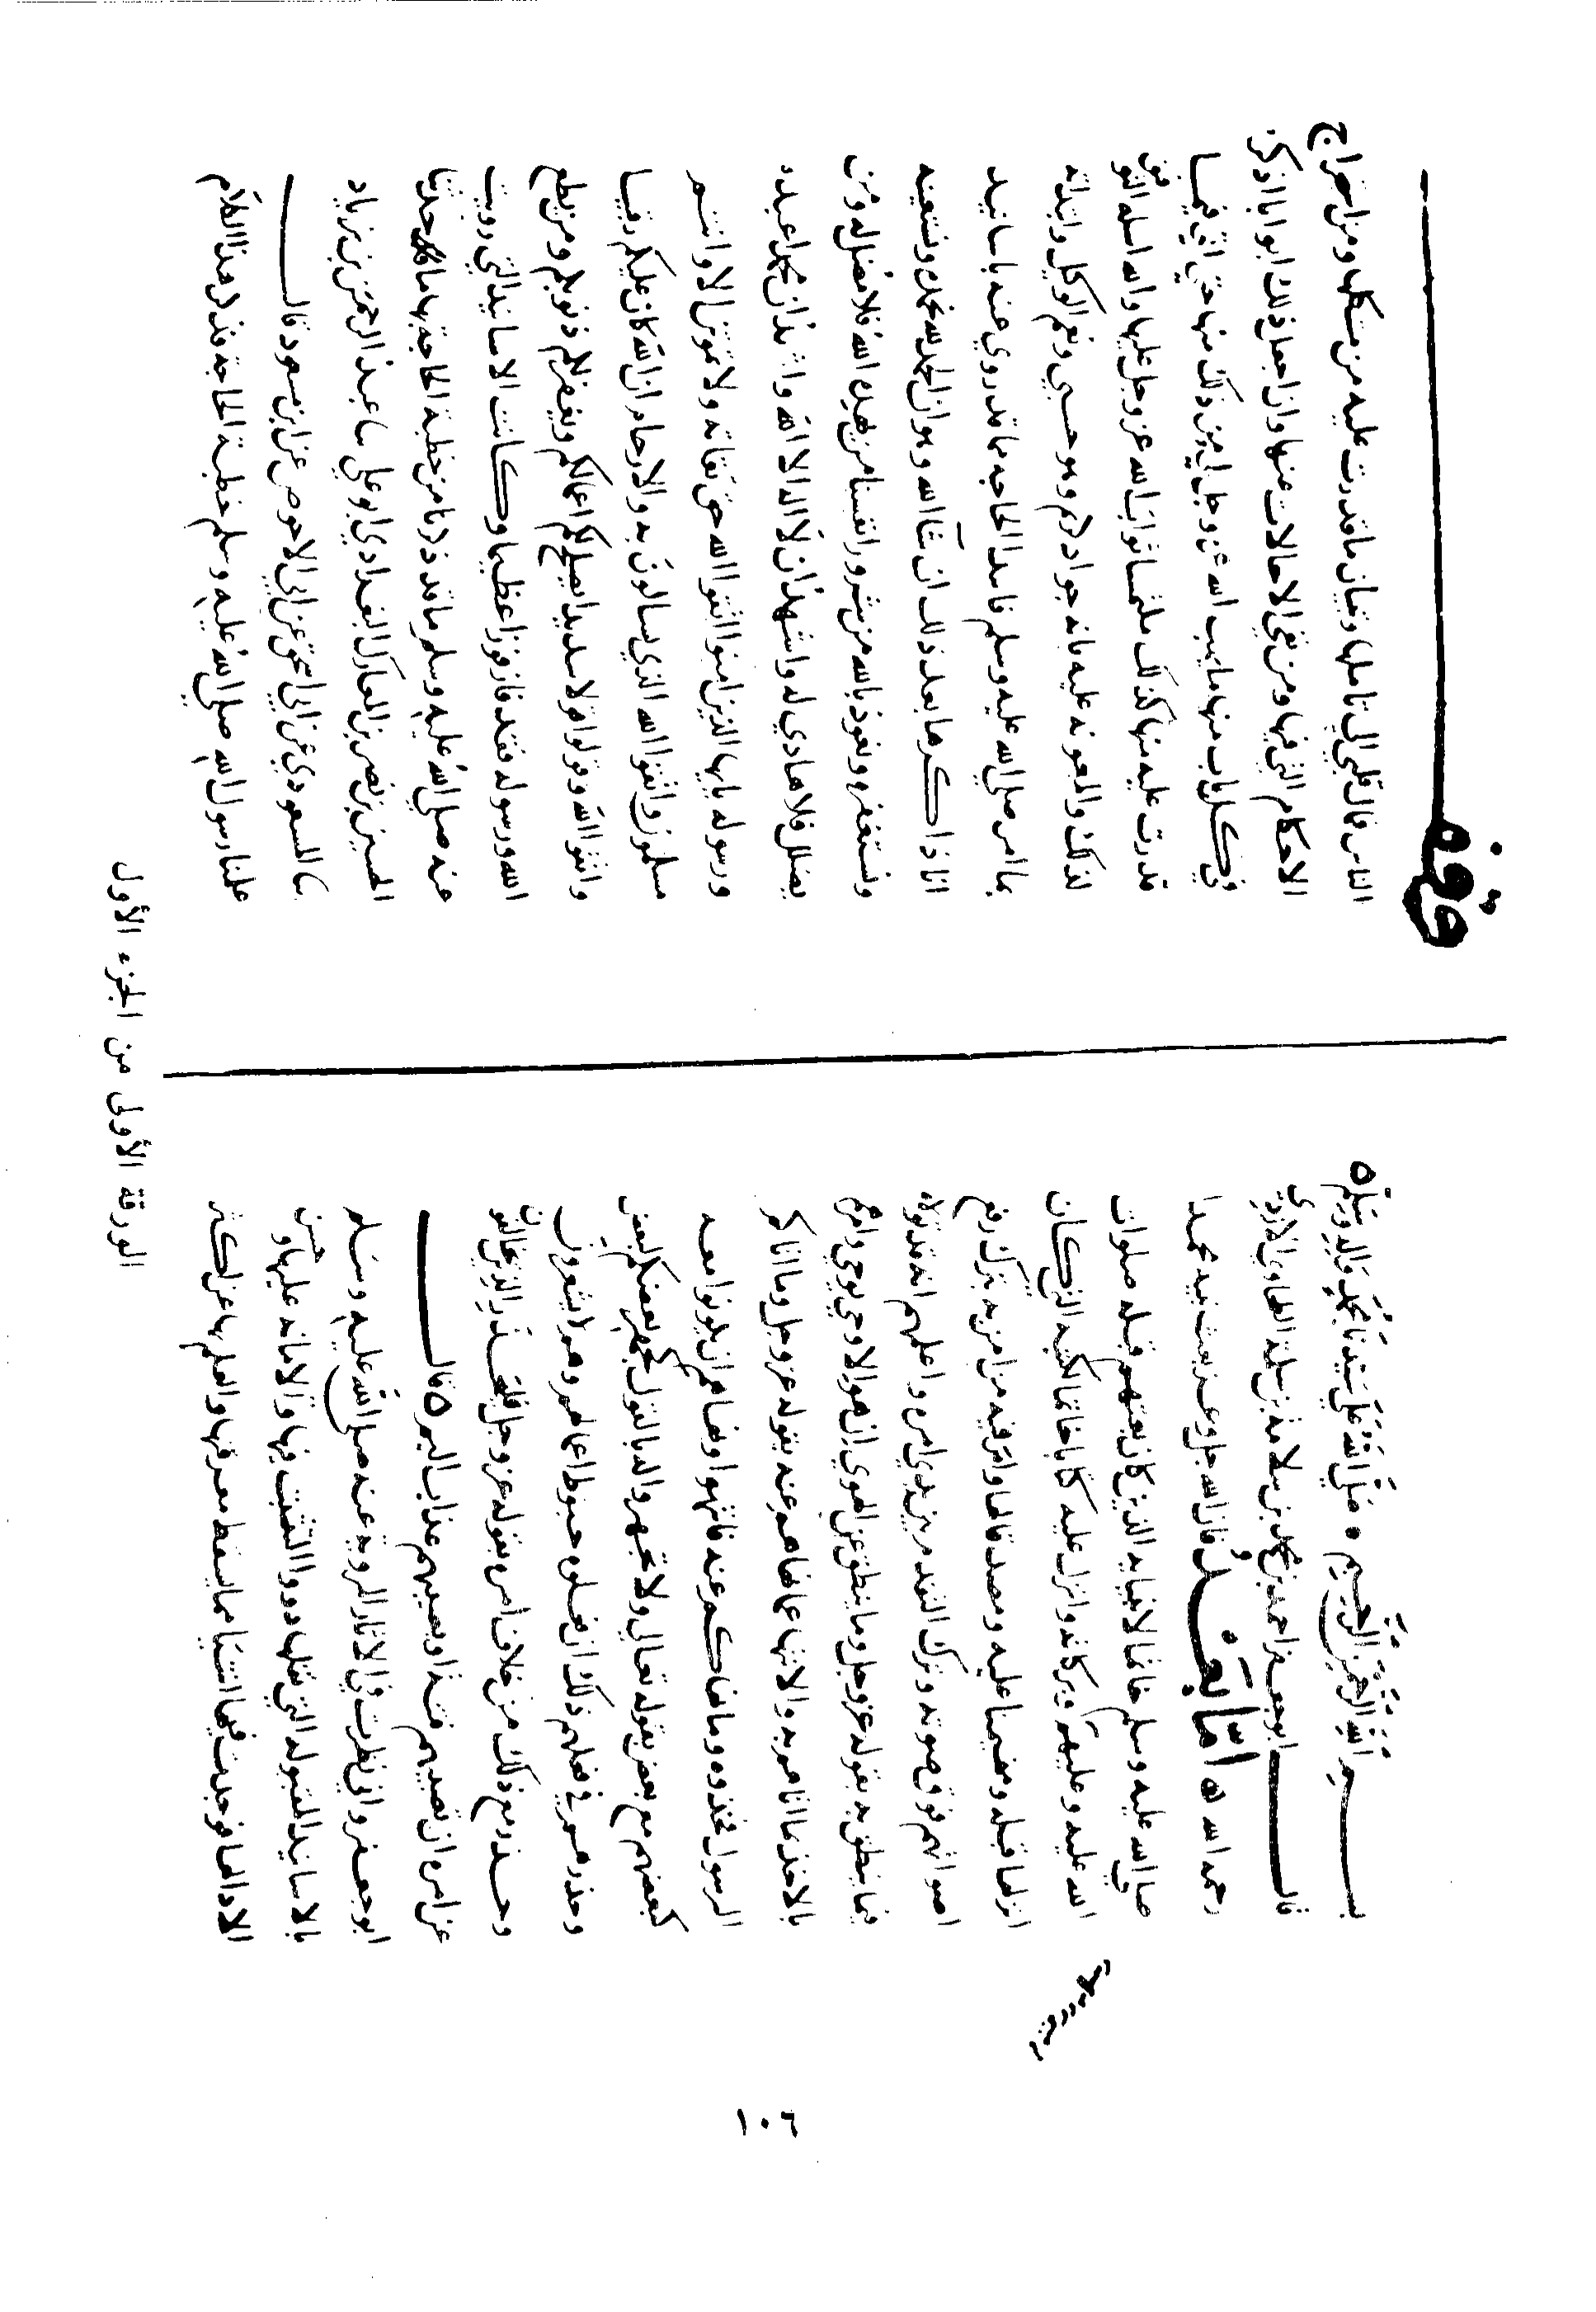 بسم الله الرحمن الرحيم صلى الله على سيدنا محمد واله وسلم
قال ابو جعفر احمد بن محمد بن سلامة بن سلمة الطحاوي الازدي
رحمه الله اما بعد فان الله جل وعز بعث نبيه محمدا
صلى الله عليه وسلم خاتما لانبيايه الذين كان بعثهم قبله صلوات
الله عليه وعليهم وبركاته وانزل عليه كتابا خاتما لكتبه الذي كان
انزلها قبله ومهيمنا عليه ومصدقا لها وامر فيه من امن به بترك رفع
اصواتهم فوق صوته وترك التقدم بين يدي امره واعلمهم انه قد تولاه
فيما ينطق به بقوله عز وجل وما ينطق عن الهوي ان هو الا وحي يوحي وامرهم
بالاخذ بما اتاهم به والانتها عما نهاهم عنه بقوله عز وجل وما اتاكم
الرسول فخذوه وما نهاكم عنه فانتهوا ونهاهم ان يكونوا معه
كبعضهم مع بعض بقوله تعالى ولا تجهروا له بالقول كجهر بعضكم لبعض
وحذرهم في فعلهم ذلك ان فعلوه حبوط اعمالهم وهم لا يشعرون
وحذر مع ذلك من خلاف امره بقوله عز وجل فليحذر الذين يخالفون
عن امره ان تصيبهم فتنة او يصيبهم عذاب اليم قال
ابو جعفر واني نظرت في الاثار المروية عنه صلى الله عليه وسلم
بالاسانيد المقبولة التي نقلها ذوو التثبت فيها والامانة عليها وحسن
الادا لها فوجدت فيها اشيا مما يسقط معرفتها والعلم بما فيها عن اكثر
الناس فمال قلبي الى تاملها وتبيان ما قدرت عليه من مشكلها ومن استخراج
الاحكام التي فيها ومن نفي الاحالات عنها وان اجعل ذلك ابوابا اذكر
في كل باب منها ما يهب الله عز وجل لي من ذلك منها حتى اتي فيما
قدرت عليه منها كذلك ملتمسا ثواب الله عز وجل عليها والله اسله التوفيق
لذلك والمعونة عليه بانه جواد كريم وهو حسبي ونعم الوكيل وابتداته
بما امر صلى الله عليه وسلم بابتدا الحاجة مما قد روي عنه باسانيد
انا ذاكرها بعد ذلك ان شا الله وهو ان الحمد لله نحمده ونستعينه
ونستغفره ونعوذ بالله من شرور انفسنا من يهده الله فلا مضل له ومن
يضلل فلا هادي له واشهد ان لا اله الا الله واشهد ان محمدا عبده
ورسوله يايها الذين امنوا اتقوا الله حق تقاته ولا تموتن الا وانتم
مسلمون واتقوا الله الذي تسالون به والارحام ان الله كان عليكم رقيبا
واتقوا الله وقولوا قولا سديدا يصلح لكم اعمالكم ويغفر لكم ذنوبكم ومن يطع
الله ورسوله فقد فاز فوزا عظيما وكانت الاسانيد التي رويت
عنه صلى الله عليه وسلم ما قد ذكرنا من خطبة الحاجة بها ما قد حدثنا
الحسين بن نصر بن المعارك البغدادي ابو علي ثنا عبد الرحمن بن زياد
ثنا المسعودي عن ابي اسحق عن ابي الاحوص عن ابن مسعود قال
علمنا رسول الله صلى الله عليه وسلم خطبة الحاجة فذكر هذا الكلام
الورقة الأولى من الجزء الأول
١٠٦